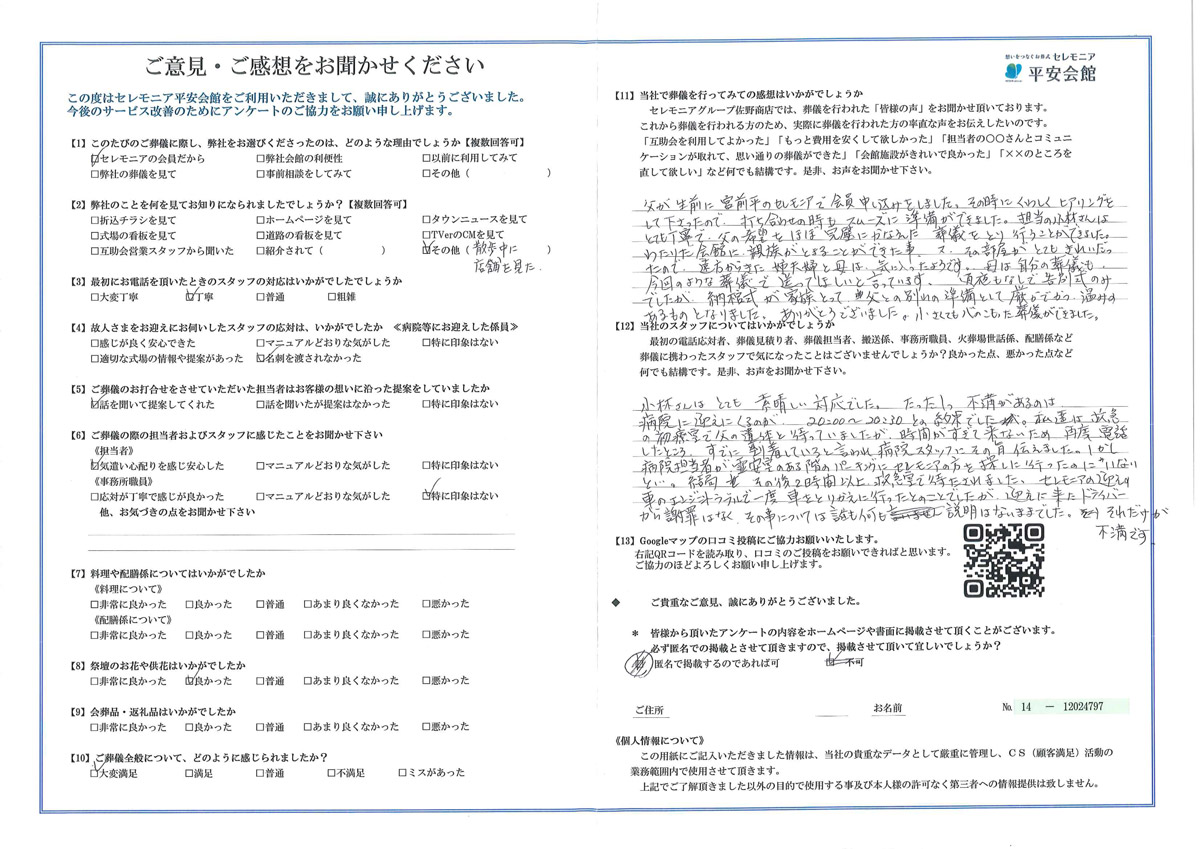 ご意見・ご感想をお聞かせください
この度はセレモニア平安会館をご利用いただきまして、誠にありがとうございました。
今後のサービス改善のためにアンケートのご協力をお願い申し上げます。
【1】このたびのご葬儀に際し、弊社をお選びくださったのは、どのような理由でしょうか【複数回答可】
☑セレモニアの会員だから　□弊社会館の利便性　□以前に利用してみて
□弊社の葬儀を見て　□事前相談をしてみて　□その他（　　　）
【2】弊社のことを何を見てお知りになられましたでしょうか？【複数回答可】
□折込チラシを見て　□ホームページを見て　□タウンニュースを見て
□式場の看板を見て　□道路の看板を見て　□TVerのCMを見て
□互助会営業スタッフから聞いた　□紹介されて（　　　）　☑その他（散歩中に
店舗を見た.
【3】最初にお電話を頂いたときのスタッフの対応はいかがでしたでしょうか
□大変丁寧　☑丁寧　□普通　□粗雑
【4】故人さまをお迎えにお伺いしたスタッフの応対は、いかがでしたか　≪病院等にお迎えした係員≫
□感じが良く安心できた　□マニュアルどおりな気がした　□特に印象はない
□適切な式場の情報や提案があった　☑名刺を渡されなかった
【5】ご葬儀のお打合せをさせていただいた担当者はお客様の想いに沿った提案をしていましたか
☑話を聞いて提案してくれた　□話を聞いたが提案はなかった　□特に印象はない
【6】ご葬儀の際の担当者およびスタッフに感じたことをお聞かせ下さい
《担当者》
☑気遣い心配りを感じ安心した　□マニュアルどおりな気がした　□特に印象はない
《事務所職員》
□応対が丁寧で感じが良かった　□マニュアルどおりな気がした　☑特に印象はない
他、お気づきの点をお聞かせ下さい
【7】料理や配膳係についてはいかがでしたか
《料理について》
□非常に良かった　□良かった　□普通　□あまり良くなかった　□悪かった
《配膳係について》
□非常に良かった　□良かった　□普通　□あまり良くなかった　□悪かった
【8】祭壇のお花や供花はいかがでしたか
□非常に良かった　☑良かった　□普通　□あまり良くなかった　□悪かった
【9】会葬品・返礼品はいかがでしたか
□非常に良かった　□良かった　□普通　□あまり良くなかった　□悪かった
【10】ご葬儀全般について、どのように感じられましたか？
☑大変満足　□満足　□普通　□不満足　□ミスがあった
想いをつなぐお葬式 セレモニア
平安会館
【11】当社で葬儀を行ってみての感想はいかがでしょうか
セレモニアグループ佐野商店では、葬儀を行われた「皆様の声」をお聞かせ頂いております。
これから葬儀を行われる方のため、実際に葬儀を行われた方の率直な声をお伝えしたいのです。
「互助会を利用してよかった」「もっと費用を安くして欲しかった」「担当者の〇〇さんとコミュニ
ケーションが取れて、思い通りの葬儀ができた」「会館施設がきれいで良かった」「××のところを
直して欲しい」など何でも結構です。是非、お声をお聞かせ下さい。
父が生前に宮前平のセレモニアで会員申し込みをしました。その時にくわしくヒアリングを
して下さったので、打ち合わせの時も スムーズに準備ができました。担当の小林さんは
とても丁寧で、父の希望をほぼ完璧にかなえた 葬儀をとり行うことができました。
わたりた会館に親族がとまることができた事、又、その部屋がとてもきれいだっ
たので、遠方からきた姉夫婦と母は、気に入ったようです。母は自分の葬儀も、
今回のような葬儀で送ってほしいと言っています。通夜もなしで告別式のみ
でしたが、納棺式が家族とって父との別れの準備として厳かでかつ温かみの
あるものとなりました。ありがとうございました。小さくても心のこもった葬儀ができました。
【12】当社のスタッフについてはいかがでしょうか
最初の電話応対者、葬儀見積り者、葬儀担当者、搬送係、事務所職員、火葬場世話係、配膳係など
葬儀に携わったスタッフで気になったことはございませんでしょうか？良かった点、悪かった点など
何でも結構です。是非、お声をお聞かせ下さい。
小林さんは とても 素晴しい 対応でした。 たった1つ 不満があるのは
病院に迎えにくるのが、20:00～20:30 との約束でしたが。私達は救急
の初療室で父の遺体と待っていましたが、時間がすぎて来ないため 再度 電話
したところ、すでに到着していると言われ病院スタッフにその旨伝えました。しかし
病院担当者が霊安室のある階のパーキングにセレモニアの方を探しに行ったのに"いない
といい。結局 その後2時間以上、救急室で待たされました。セレモニアの迎えの
車のエンジントラブルで一度 車をとりかえに行ったとのことでしたが、迎えに来たドライバー
から謝罪はなく、その事については誰も何も 説明はないままでした。それだけが
不満です.
【13】Googleマップの口コミ投稿にご協力お願いいたします。
右記QRコードを読み取り、口コミのご投稿をお願いできればと思います。
ご協力のほどよろしくお願い申し上げます。
◆　ご貴重なご意見、誠にありがとうございました。
＊　皆様から頂いたアンケートの内容をホームページや書面に掲載させて頂くことがございます。
必ず匿名での掲載とさせて頂きますので、掲載させて頂いて宜しいでしょうか？
☑匿名で掲載するのであれば可　☑不可
ご住所　お名前　№ 14 － 12024797
《個人情報について》
この用紙にご記入いただきました情報は、当社の貴重なデータとして厳重に管理し、ＣＳ（顧客満足）活動の
業務範囲内で使用させて頂きます。
上記でご了解頂きました以外の目的で使用する事及び本人様の許可なく第三者への情報提供は致しません。